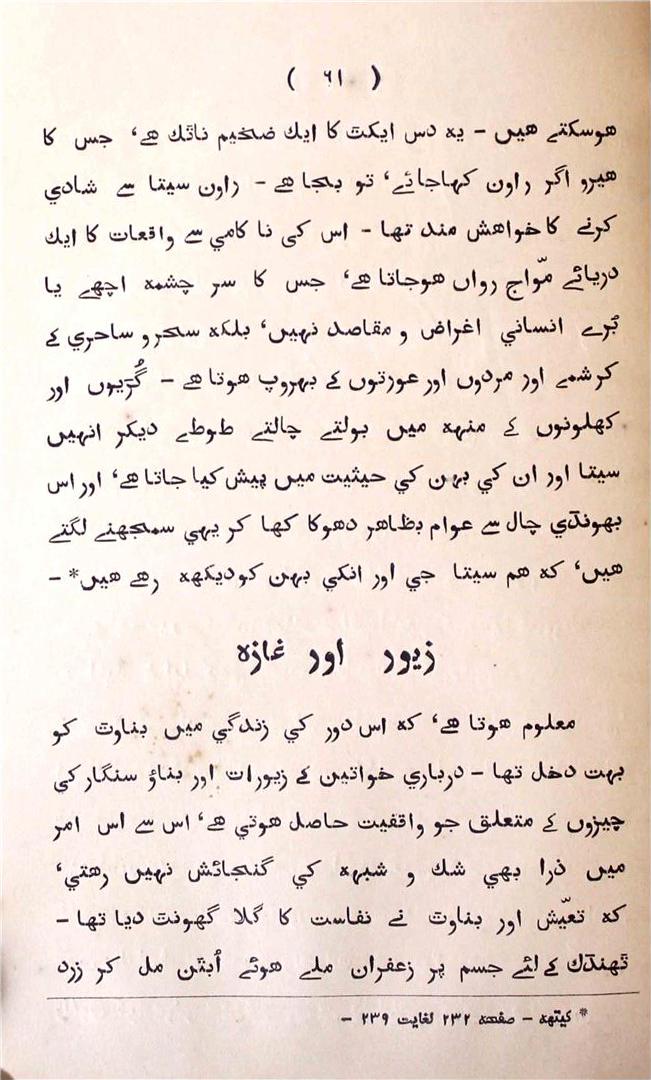 ( ٦١ )
هوسکتے هیں - یه دس ایکٹ کا ایک ضخیم ناٹک هے، جس کا
هیرو اگر راون کہاجائے، تو بجا هے - راون سیتا سے شادي
کرنے کاخواهش مند تھا - اس کی نا کامي سے واقعات کا ایک
دریائے موّاج رواں هوجاتا هے، جس کا سر چشمه اچھے یا
بُرے انساني اغراض و مقاصد نہیں، بلکه سحر و ساحري کے
کرشمے اور مردوں اور عورتوں کے بہروپ هوتا هے - گُڑیوں اور
کھلونوں کے منهه میں بولتے چالتے طوطے دیکر انہیں
سیتا اور ان کي بہن کي حیثیت میں پیش کیا جاتا هے، اور اس
بھونڈي چال سے عوام بظاهر دهوکا کھا کر یہي سمجھنے لگتے
هیں، که هم سیتا جي اور انکي بہن کودیکھه رهے هیں* -
زیور اور غازه
معلوم هوتا هے، که اس دور کي زندگي میں بناوٹ کو
بہت دخل تھا - درباري خواتین کے زیورات اور بناؤ سنگار کی
چیزوں کے متعلق جو واقفیت حاصل هوتي هے، اس سے اس امر
میں ذرا بھي شك و شبہه کي گنجائش نہیں رهتي،
که تعیّش اور بناوٹ نے نفاست کا گلا گھونٹ دیا تھا -
ٹھنڈك کے لئے جسم پر زعفران ملے هوئے اُبٹن مل کر زرد
* کیتهه - صفحه ٢٣٢ لغایت ٢٣٩ -